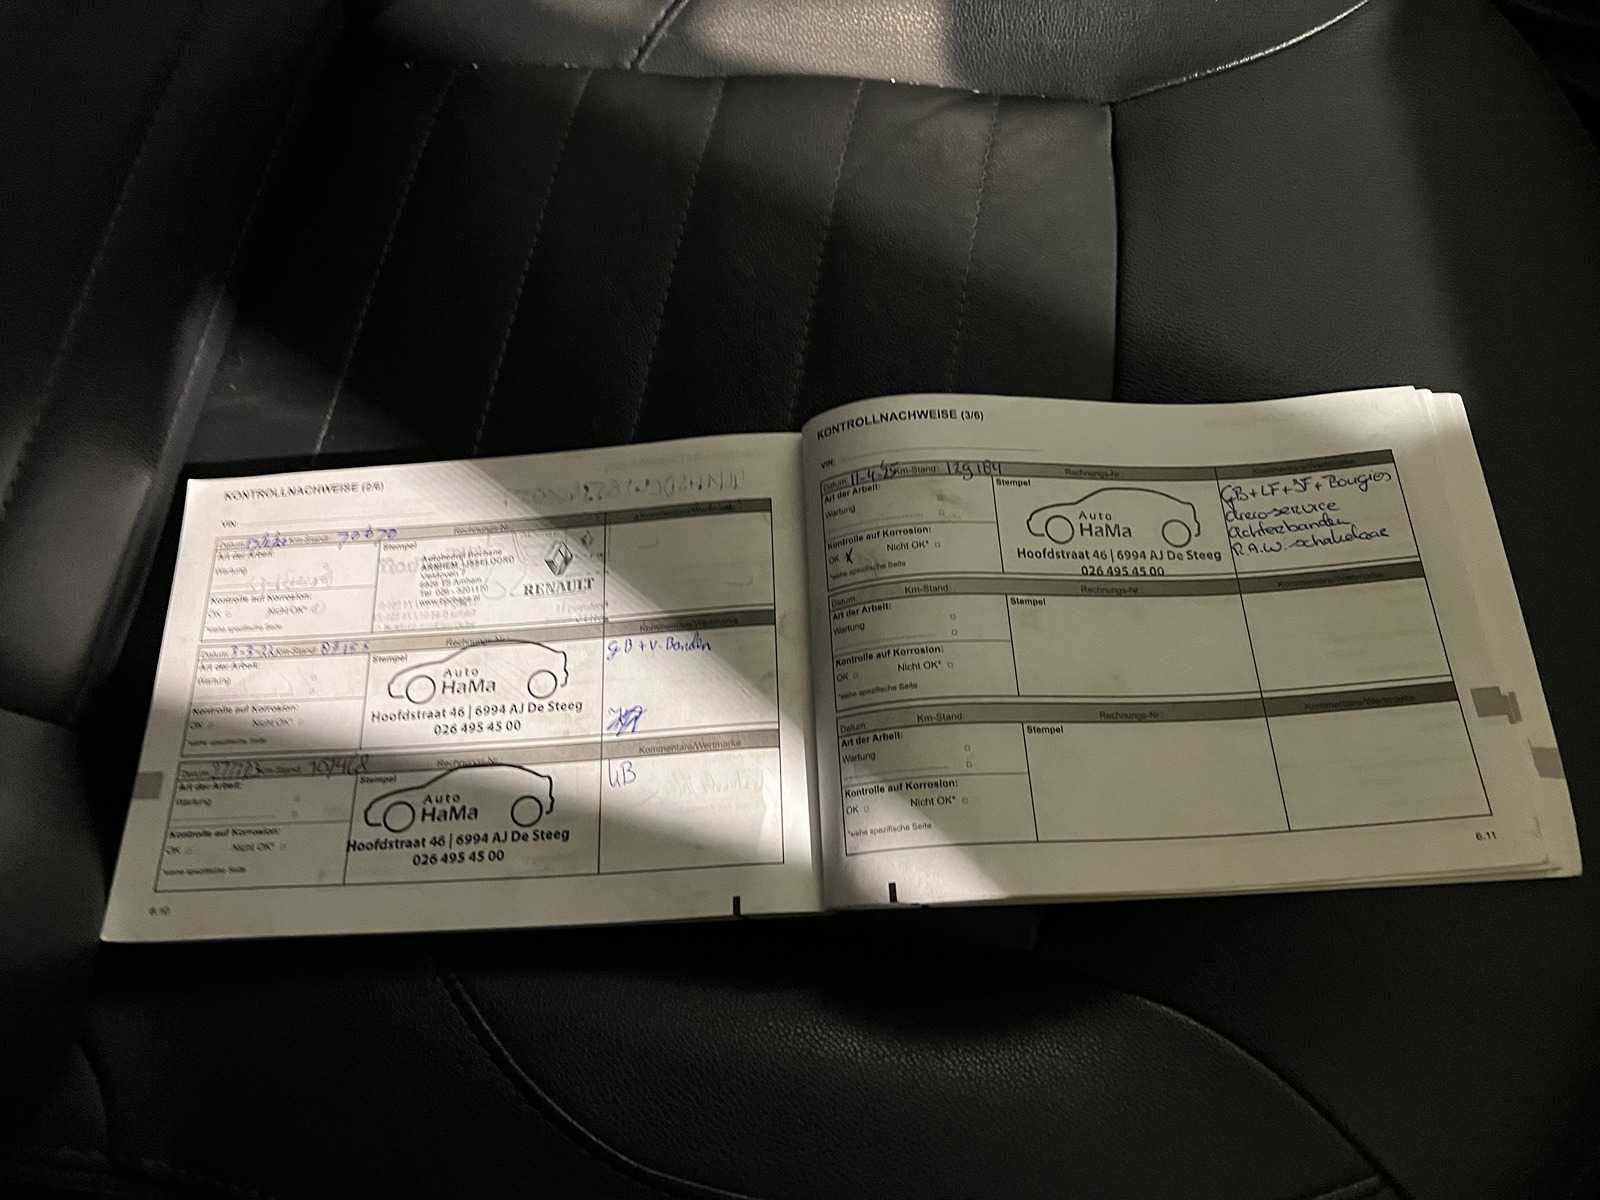 KONTROLLNACHWEISE (2/6)
VIN:
Datum: Km-Stand: 70670 Rechnungs-Nr.
Art der Arbeit:
Wartung
Kontrolle auf Korrosion:
OK Nicht OK*
*siehe spezifische Seite
Stempel
ARNHEM IJSSELOORD
RENAULT
Datum: 3-3-22 Km-Stand: Rechnungs-Nr.
Kommentare/Wertmarke
Art der Arbeit:
Wartung
Kontrolle auf Korrosion:
OK Nicht OK*
*siehe spezifische Seite
Stempel
Auto
HaMa
Hoofdstraat 46 | 6994 AJ De Steeg
026 495 45 00
gB + v. Banden
Datum: Km-Stand: 107468 Rechnungs-Nr.
Kommentare/Wertmarke
Art der Arbeit:
Wartung
Kontrolle auf Korrosion:
OK Nicht OK*
*siehe spezifische Seite
Stempel
Auto
HaMa
Hoofdstraat 46 | 6994 AJ De Steeg
026 495 45 00
GB
6.10
KONTROLLNACHWEISE (3/6)
VIN:
Datum: 11-4-25 Km-Stand: 129184 Rechnungs-Nr.
Kommentare/Wertmarke
Art der Arbeit:
Wartung
Kontrolle auf Korrosion:
OK X Nicht OK*
*siehe spezifische Seite
Stempel
Auto
HaMa
Hoofdstraat 46 | 6994 AJ De Steeg
026 495 45 00
GB + LF + IF + Bougies
aircoservice
achterbanden
R.A.W. schakelaar
Datum: Km-Stand Rechnungs-Nr.
Kommentare/Wertmarke
Art der Arbeit:
Wartung
Kontrolle auf Korrosion:
OK Nicht OK*
*siehe spezifische Seite
Stempel
Datum: Km-Stand Rechnungs-Nr.
Kommentare/Wertmarke
Art der Arbeit:
Wartung
Kontrolle auf Korrosion:
OK Nicht OK*
*siehe spezifische Seite
Stempel
6.11